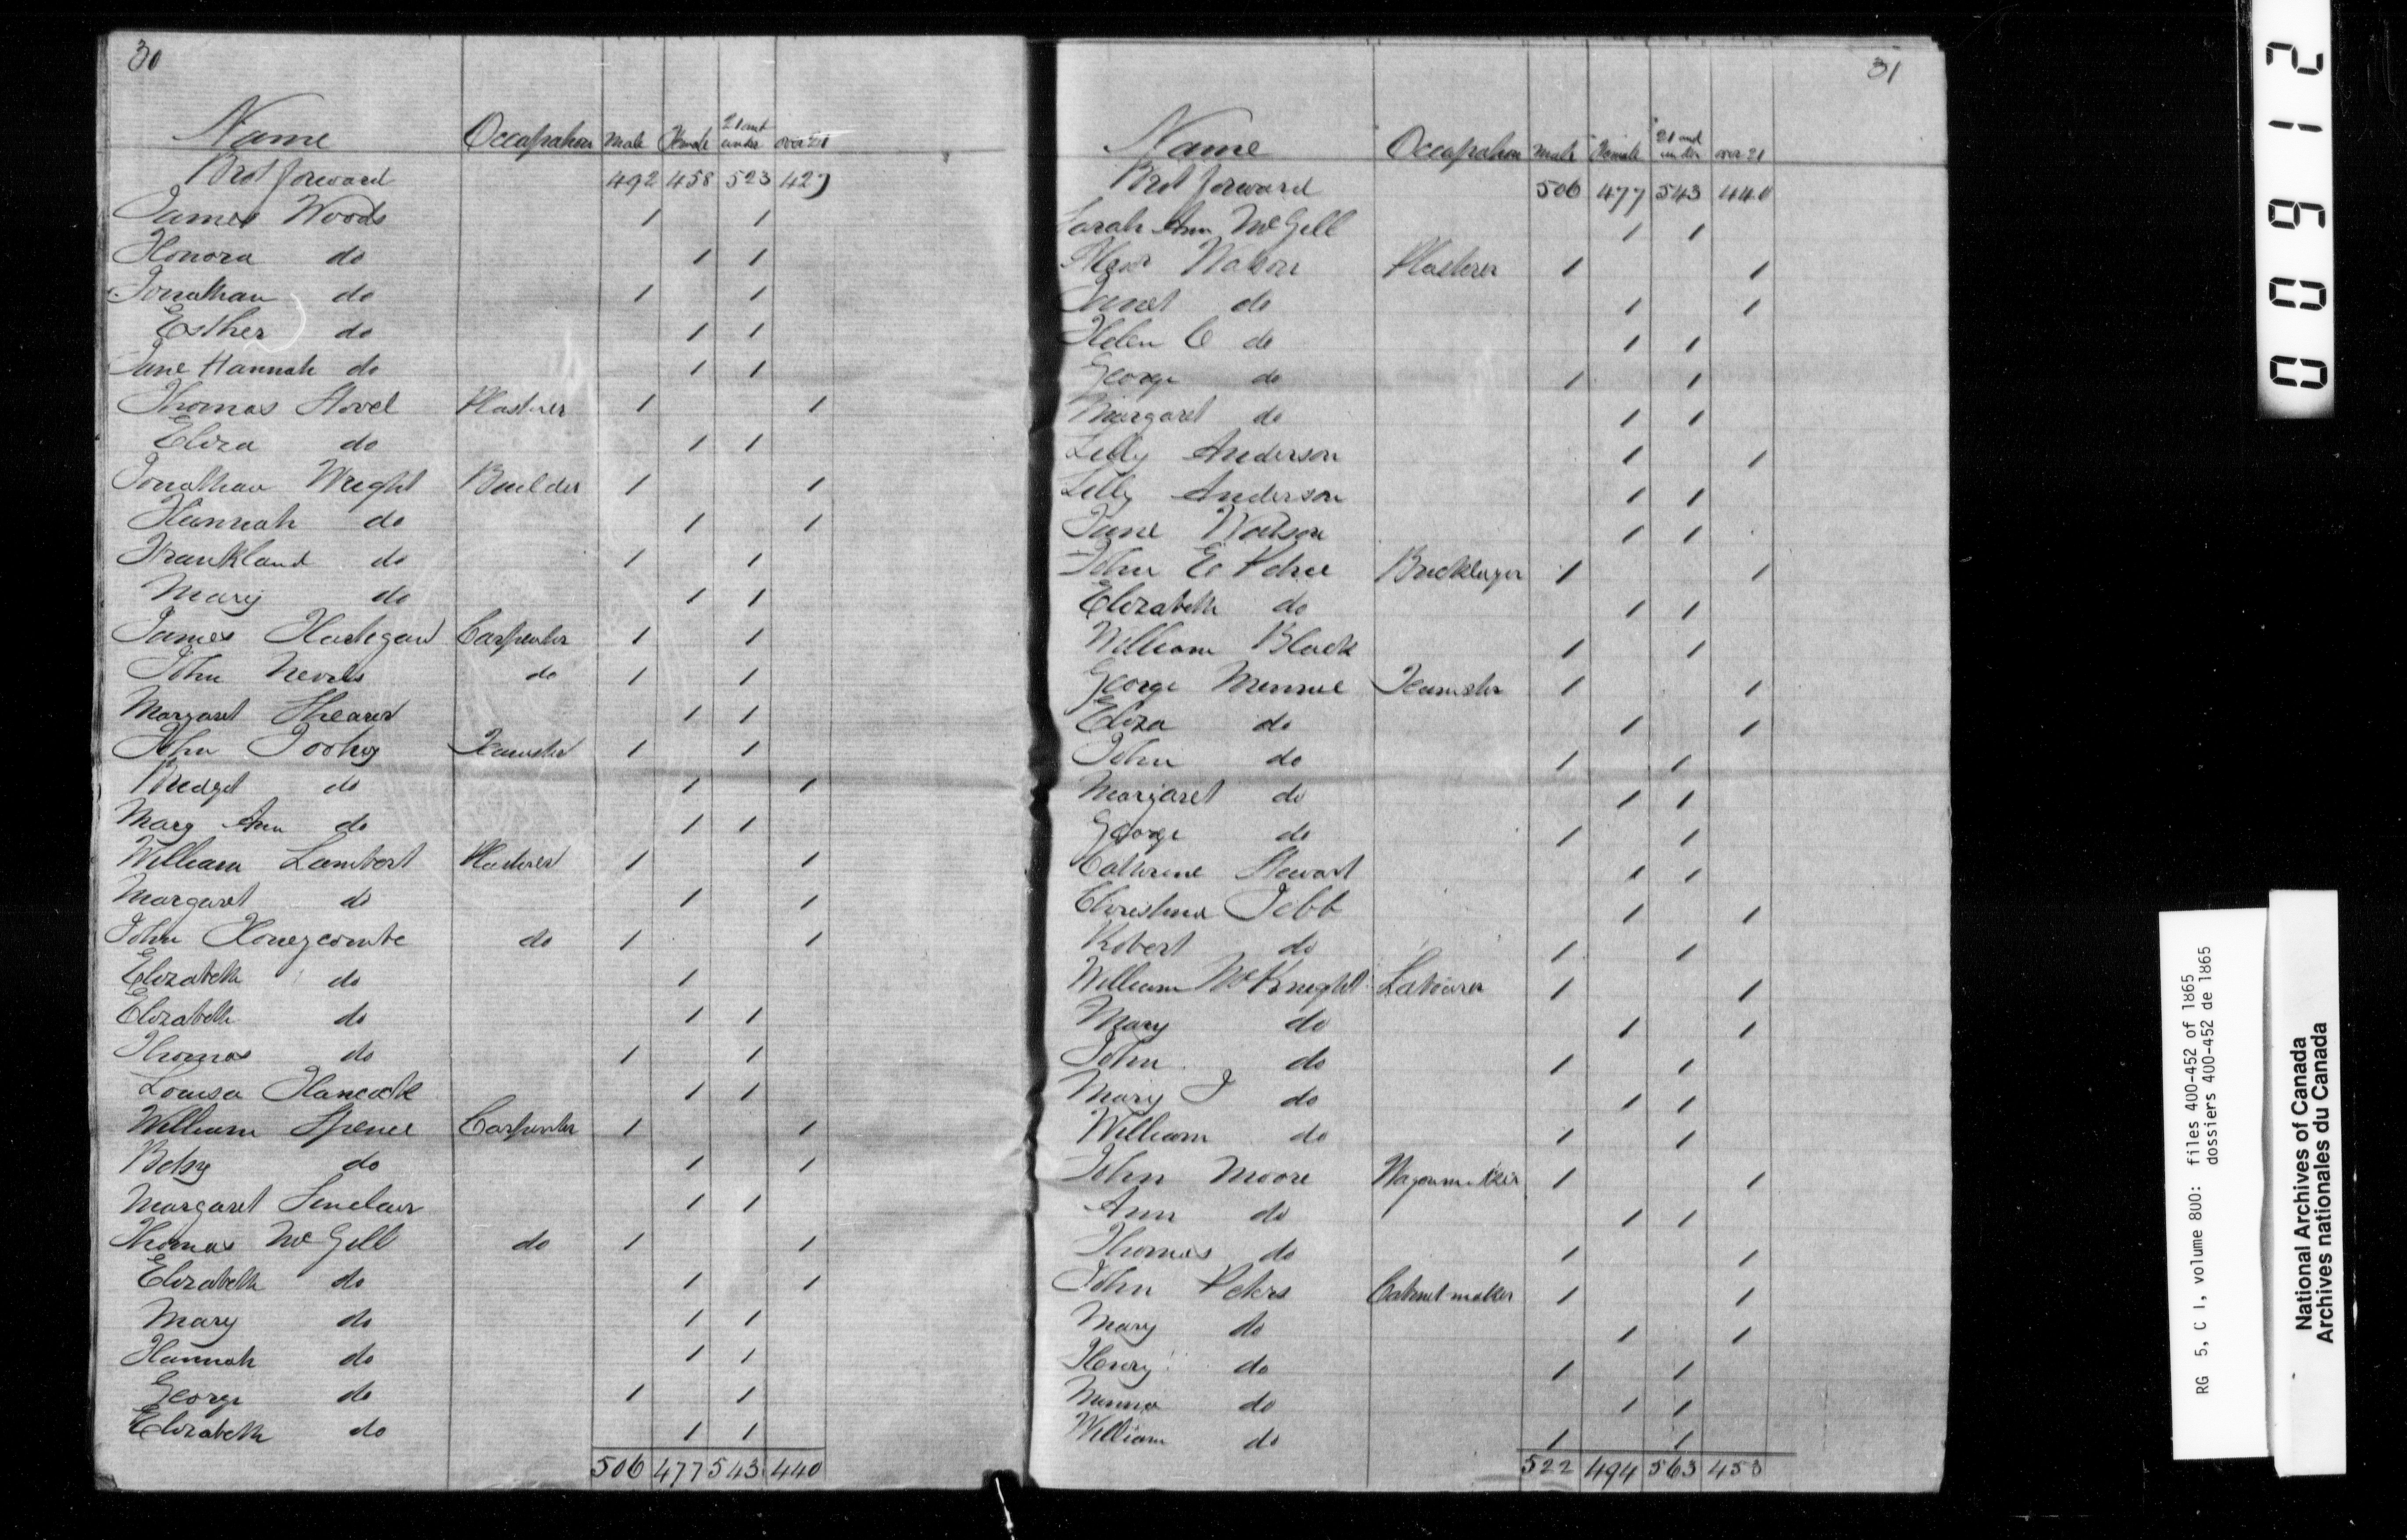 30
Name Occupation Male Female 21 and under over 21
Brot forward 492 458 523 427
James Woods 1 1
Honora do 1 1
Jonathan do 1 1
Esther do 1 1
Jane Hannah do 1 1
Thomas Hovel Plasterer 1 1
Eliza do 1 1
Jonathan Wright Builder 1 1
Hannah do 1 1
Frankland do 1 1
Mary do 1 1
James Hartegan Carpenter 1 1
John do 1 1
Margaret Shearer 1 1
John Toohey Teamster 1 1
Bridget do 1 1
Mary Ann do 1 1
William Lambert Plasterer 1 1
Margaret do 1 1
John Honeycombe do 1 1
Elizabeth do 1
Elizabeth do 1 1
Thomas do 1 1
Louisa Hancock 1 1
William Spence Carpenter 1 1
Betsy do 1 1
Margaret Sinclair 1 1
Thomas McGill do 1 1
Elizabeth do 1 1
Mary do 1 1
Hannah do 1 1
George do 1 1
Elizabeth do 1 1
506 477 543 440
31
Name Occupation Male Female 21 and under over 21
Brot forward 506 477 543 440
Sarah Ann McGill 1 1
Watson Plasterer 1 1
Janet do 1 1
Helen C do 1 1
George do 1 1
Margaret do 1 1
Lilly Anderson 1 1
Lilly Anderson 1 1
Jane Watson 1 1
John E Bricklayer 1 1
Elizabeth do 1 1
William Black 1 1
George Minnie Teamster 1 1
Eliza do 1 1
John do 1 1
Margaret do 1 1
George do 1 1
Catherine Stewart 1 1
Christina Tebb 1 1
Robert do 1 1
William McKnight Labourer 1 1
Mary do 1 1
John do 1 1
Mary J do 1 1
William do 1 1
John Moore Wagonmaker 1 1
Ann do 1 1
Thomas do 1 1
John Peters Cabinet maker 1 1
Mary do 1 1
Henry do 1 1
do 1 1
William do 1 1
522 494 563 453
00912
RG 5, C 1, volume 800: files 400-452 of 1865
dossiers 400-452 de 1865
National Archives of Canada
Archives nationales du Canada